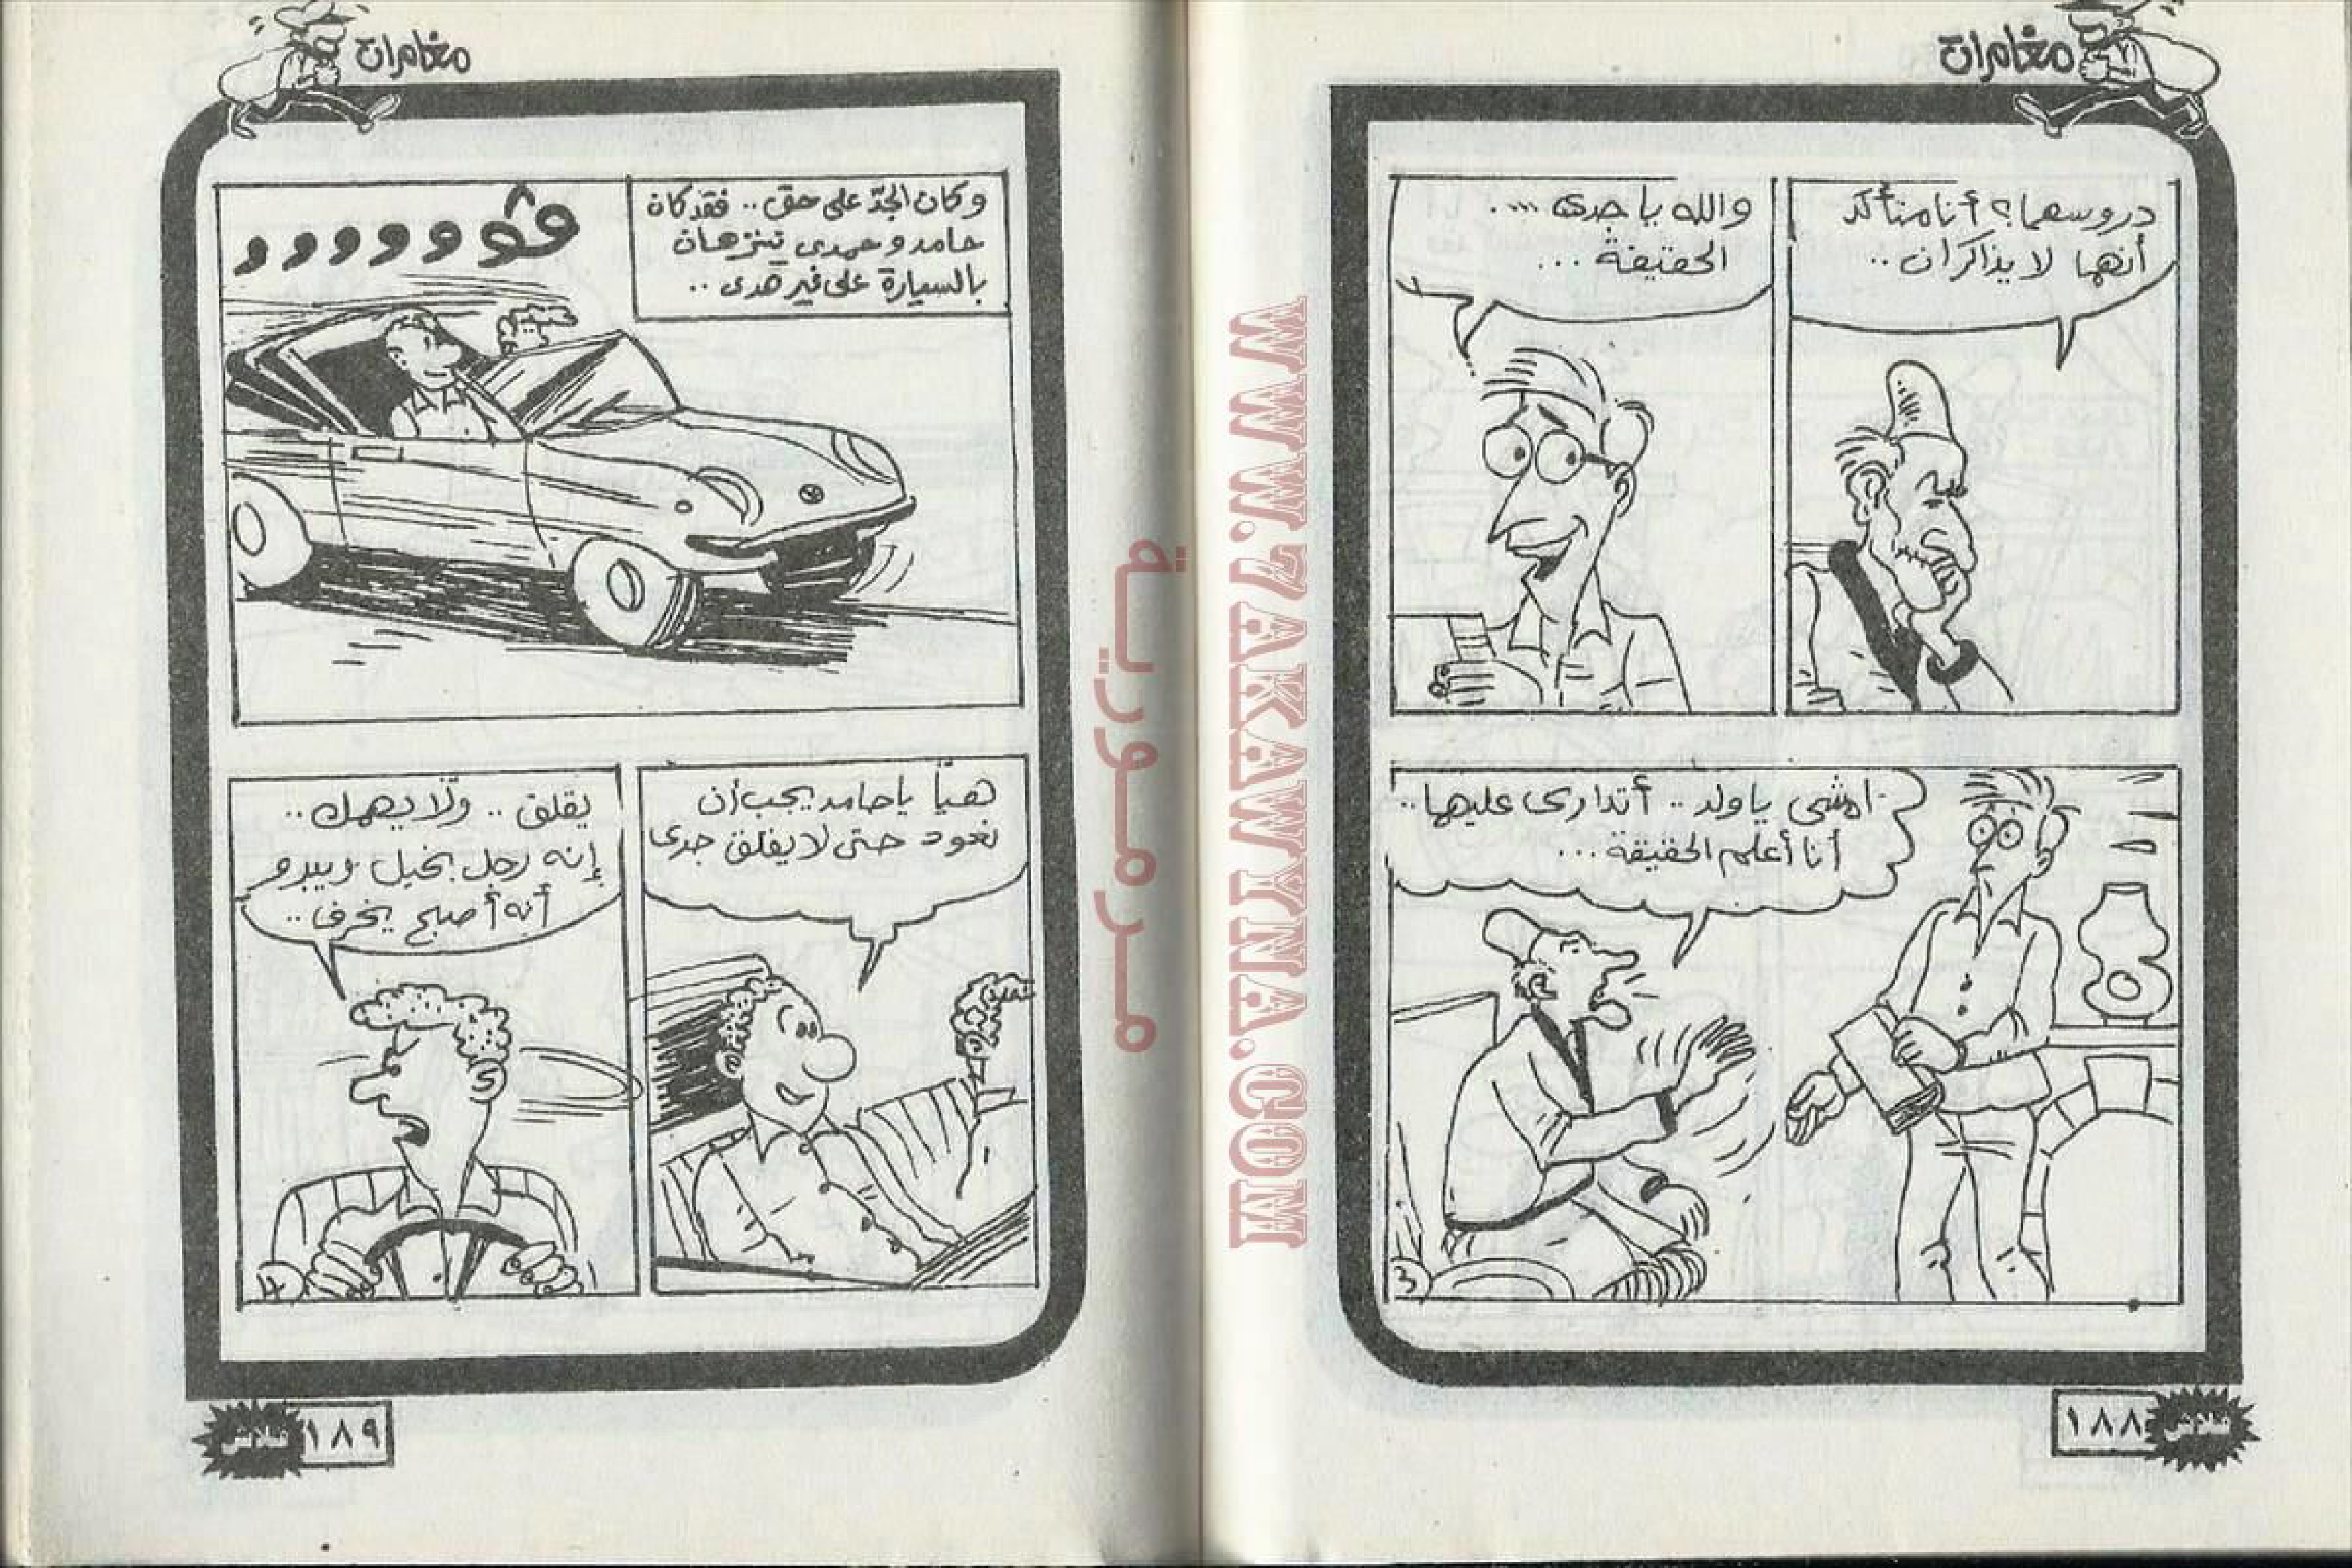 مغامرات
دروسهما؟ أنا متأكد
أنهما لا يذاكران ..
والله يا جدى ....
الحقيقة ...
امشى يا ولد .. أتدارى عليهما ..
أنا أعلم الحقيقة ...
١٨٨
فلاش
مغامرات
وكان الجدّ على حق .. فقد كان
حامد وحمدى يتنزهان
بالسيارة على غير هدى ..
ڤووووووو
هيّا يا حامد يجب أن
نعود حتى لا يقلق جدى
يقلق .. ولا يهمك ..
إنه رجل بخيل ويبدو
أنه أصبح يخرف ..
١٨٩
فلاش
مرمورية
WWW.7AKAWYNA.COM